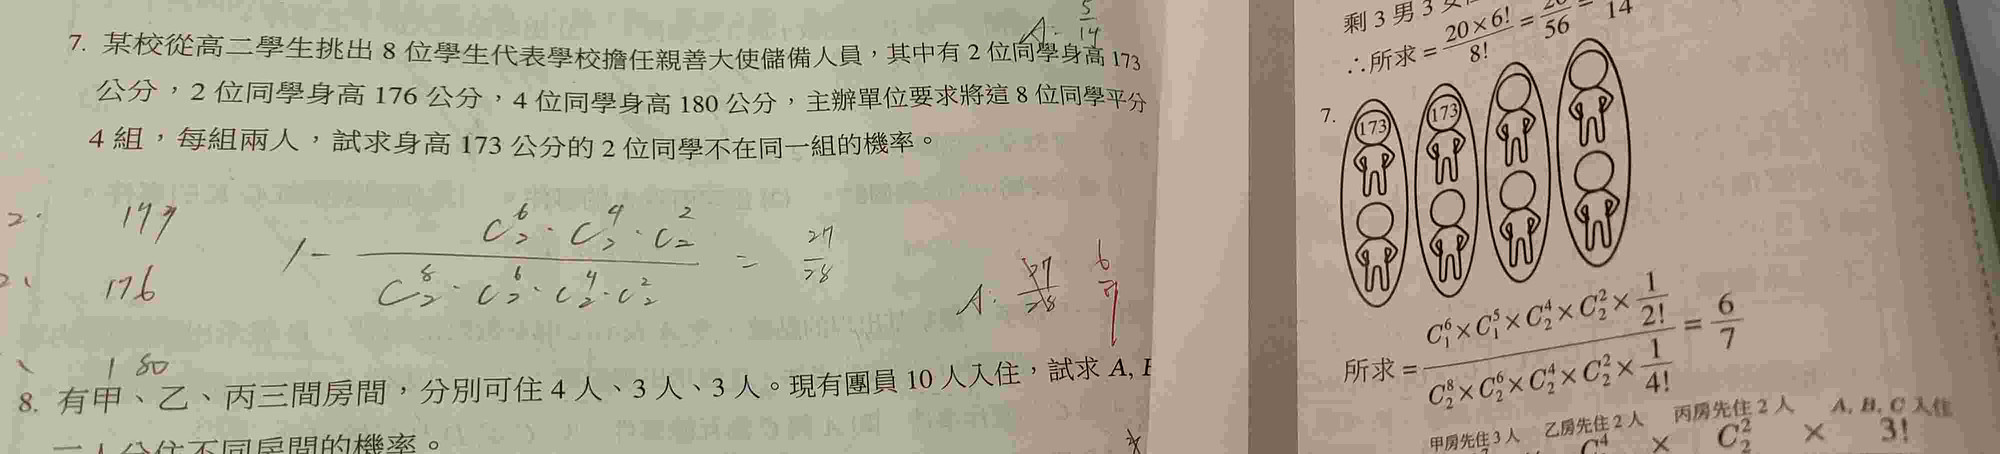 A: 5/14
7. 某校從高二學生挑出 8 位學生代表學校擔任親善大使儲備人員，其中有 2 位同學身高 173
公分，2 位同學身高 176 公分，4 位同學身高 180 公分，主辦單位要求將這 8 位同學平分
4 組，每組兩人，試求身高 173 公分的 2 位同學不在同一組的機率。
176
180
1 - (C^6_2 · C^4_2 · C^2_2)/(C^8_2 · C^6_2 · C^4_2 · C^2_2) = 27/28
A: 27/28 6/7
8. 有甲、乙、丙三間房間，分別可住 4 人、3 人、3 人。現有團員 10 人入住，試求 A,
分住不同房間的機率。
剩 3 男 3
∴所求 = (20×6!)/8! = 20/56 = 14
7.
173
173
所求 = (C^6_1×C^5_1×C^4_2×C^2_2×1/2!)/(C^8_2×C^6_2×C^4_2×C^2_2×1/4!) = 6/7
甲房先住 3 人 乙房先住 2 人 丙房先住 2 人 A, B, C 入住
C^4_2 × C^2_2 × 3!